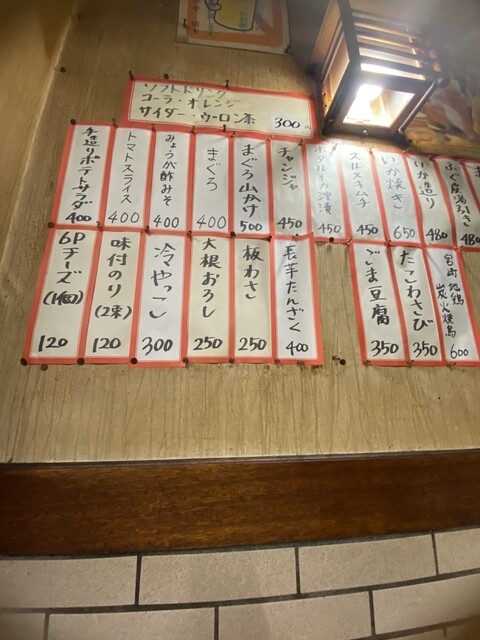 ソフトドリンク
コーラ・オレンジ
サイダー・ウーロン茶 300
手造りポテトサラダ 400
トマトスライス 400
みょうが酢みそ 400
まぐろ 400
まぐろ山かけ 500
チャンジャ 450
ホタルイカ沖漬 450
スルメキムチ 450
いか焼き 650
いか造り 480
ふぐ皮湯引き 480
480
6Pチーズ(1個) 120
味付のり(2束) 120
冷やっこ 300
大根おろし 250
板わさ 250
長芋たんざく 400
ごま豆腐 350
たこわさび 350
地鶏
炭火焼鳥 600